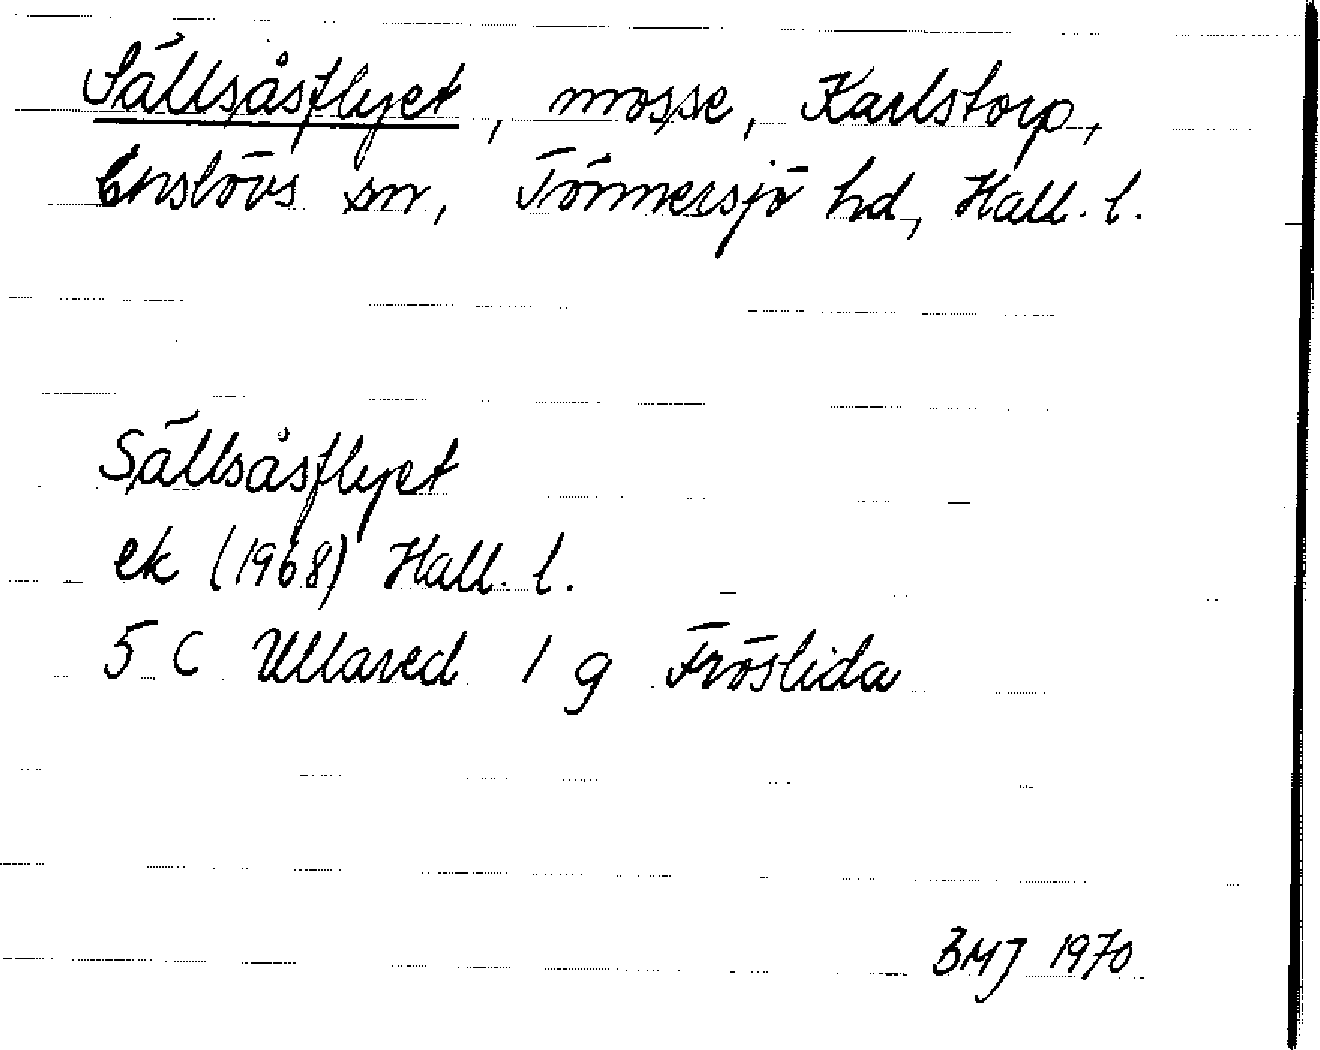 Sällsåsflyet, mosse, Karlstorp,
Enslövs sn, Tönnersjö hd, Hall. l.
Sällsåsflyet
ek (1968) Hall. l.
5 C Ullared 1 g Fröslida
BMJ 1970